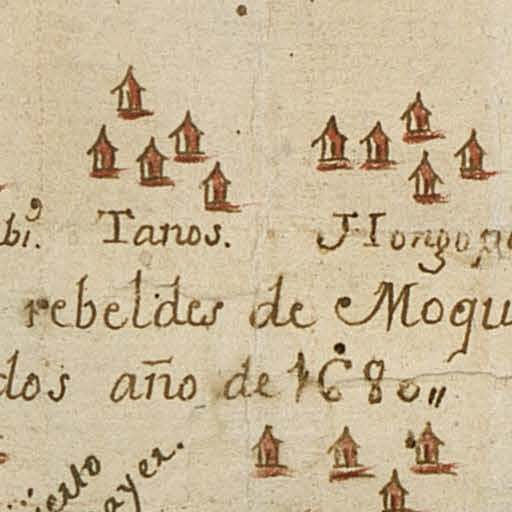 bi. Tanos. Hongopi
rebeldes de Moqu
dos año de 1680
ierto
ayer.